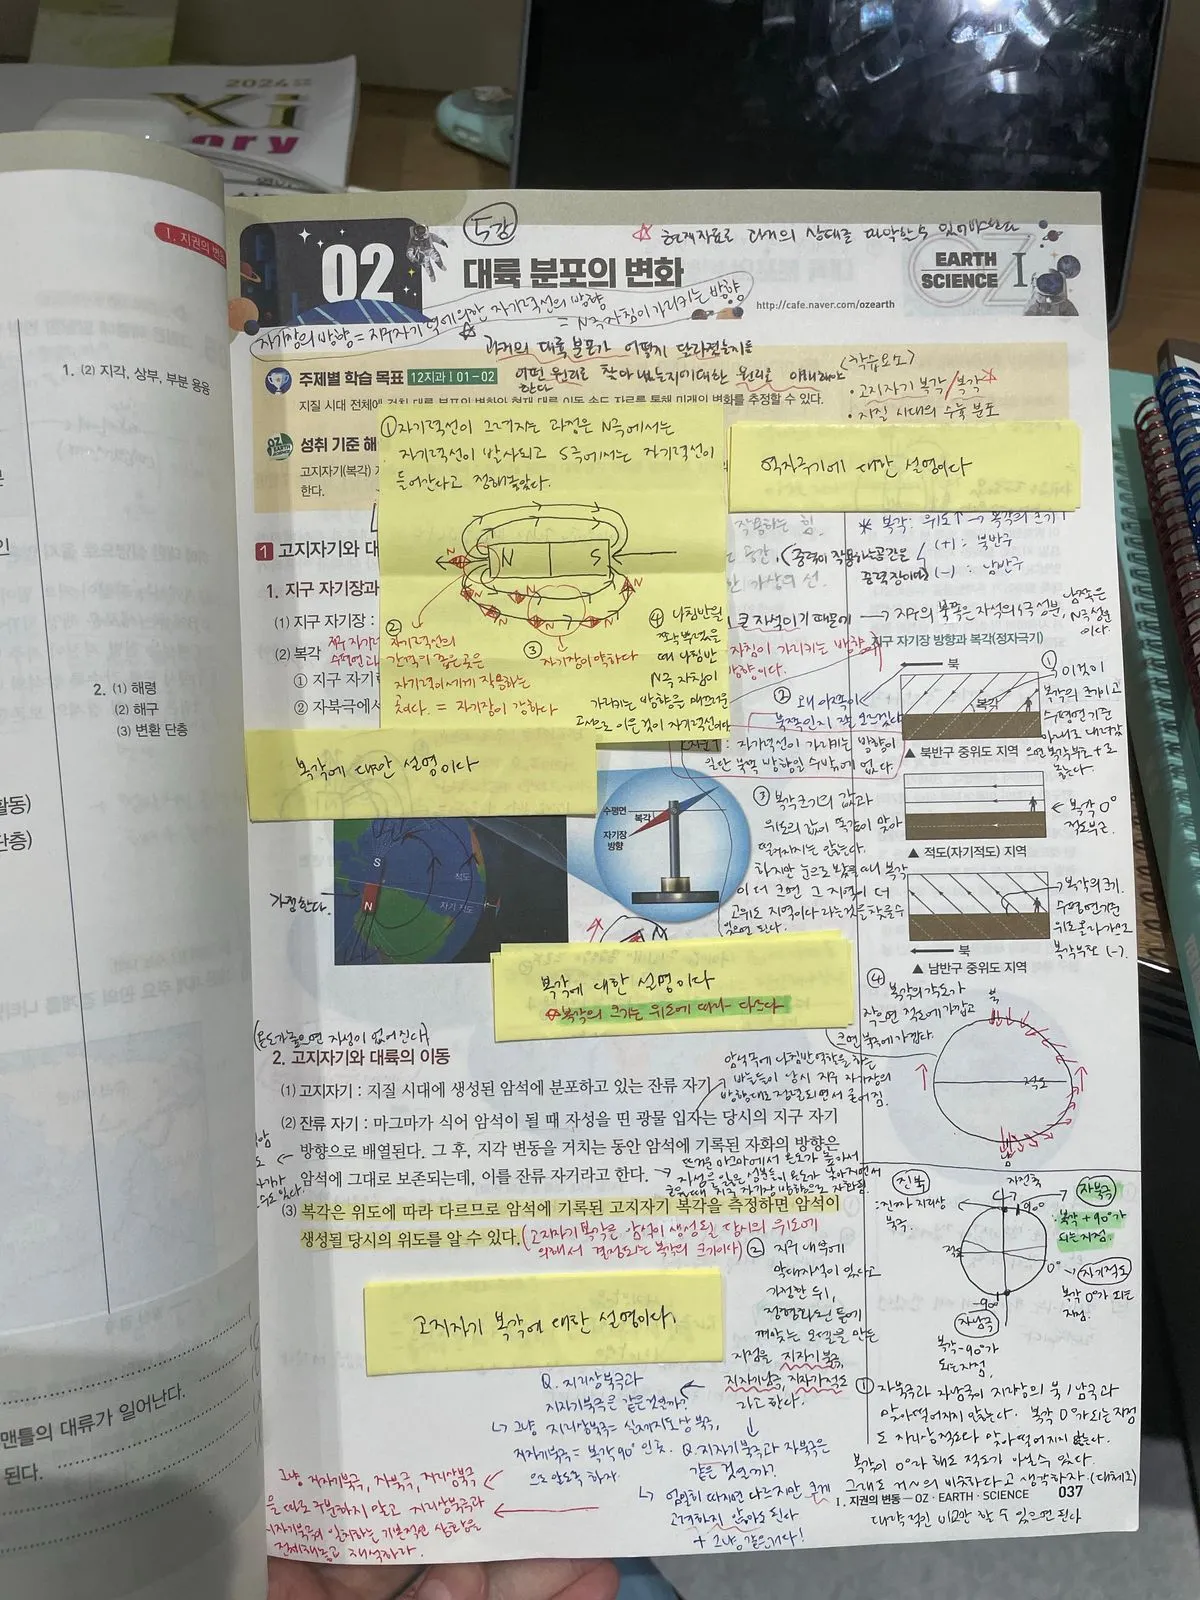 2024
Xi
ory
1. 지권의 변
1. (2) 지각, 상부, 부분 용융
2. (1) 해령
(2) 해구
(3) 변환 단층
활동)
단층)
맨틀의 대류가 일어난다.
된다.
5강
☆ 현재자료로 과거의 상태를 파악할 수 있어야한다
02
대륙 분포의 변화
EARTH
SCIENCE I
http://cafe.naver.com/ozearth
자기장의 방향 = 지구자기력에 의한 자기력선의 방향
= N극 자침이 가리키는 방향
과거의 대륙 분포가 어떻게 달라졌는지를
어떤 원리로 찾아냈는지에 대한 원리를 이해해야
한다
<학습요소>
· 고지자기 복각/복각☆
· 지질 시대의 수륙 분포
주제별 학습 목표 12지과Ⅰ01-02
지질 시대 전체에 걸친 대륙 분포의 변화와 현재 대륙 이동 속도 자료를 통해 미래의 변화를 추정할 수 있다.
성취 기준 해
고지자기(복각)
한다.
① 자기력선이 그려지는 과정은 N극에서는
자기력선이 발사되고 S극에서는 자기력선이
들어간다고 정해놓았다.
N S
② 자기력선의
간격이 좁은 곳은
자기력이 세게 작용하는
곳이다. = 자기장이 강하다
③ 자기장이 약하다
④ 나침반을
쭉 놓았을
때 나침반
N극 자침이
가리키는 방향을 매끄러운
곡선으로 이은 것이 자기력선이다
대한 설명이다
작용하는 힘.
(중력이 작용하는 공간을
중력장이라)
* 복각: 위도↑ → 복각의 크기↑
(+) : 북반구
(-) : 남반구
1 고지자기와 대
1. 지구 자기장과
(1) 지구 자기장 :
(2) 복각
① 지구 자기
② 자북극에서
큰 자석이기 때문에 → 지구의 북쪽은 자석의 S극 성분, 남쪽은
N극성분
이다.
자침이 가리키는 방향
방향이다.
지구 자기장 방향과 복각(정자극기)
북
복각
▲ 북반구 중위도 지역
① 이것이
복각의 크기이고
수평면 기준
아래로 내려갔
으면 복각부호 +로
놓는다.
자기력선이 가리키는 방향이
일단 북쪽 방향일 수밖에 없다.
▲ 적도(자기적도) 지역
← 복각 0°
적도부근.
북
▲ 남반구 중위도 지역
→ 복각의 크기.
수평면 기준
위로 올라가면
복각부호 (-).
복각에 대한 설명이다
수평면
복각
자기장
방향
S
N
적도
자기 적도
가정한다.
③ 복각크기의 값과
위도의 값이 똑같이 맞아
떨어지지는 않는다.
하지만 눈으로 봤을 때 복각
이 더 크면 그 지역이 더
고위도 지역이다 라는 것을 찾을 수
있으면 된다.
복각에 대한 설명이다
☆복각의 크기는 위도에 따라 다르다
④ 복각의 각도가
작으면 적도에 가깝고
크면 북극에 가깝다.
북
적도
남
(온도가 높으면 자성이 없어진다)
2. 고지자기와 대륙의 이동
(1) 고지자기 : 지질 시대에 생성된 암석에 분포하고 있는 잔류 자기
암석 속에 나침반 역할을 하는
바늘들이 당시 지구 자기장의
방향대로 정렬되면서 굳어짐.
(2) 잔류 자기 : 마그마가 식어 암석이 될 때 자성을 띤 광물 입자는 당시의 지구 자기
방향으로 배열된다. 그 후, 지각 변동을 거치는 동안 암석에 기록된 자화의 방향은
암석에 그대로 보존되는데, 이를 잔류 자기라고 한다.
뜨거운 마그마에서 온도가 높아서
자성을 잃은 성분들이 온도가 낮아지면서
굳을 때 지구 자기장 방향으로 자화됨.
(3) 복각은 위도에 따라 다르므로 암석에 기록된 고지자기 복각을 측정하면 암석이
생성될 당시의 위도를 알 수 있다.
(고지자기 복각은 암석이 생성될 당시의 위도에
의해서 결정되는 복각의 크기이다)
고지자기 복각에 대한 설명이다.
② 지구 내부에
막대자석이 있다고
가정한 뒤,
정형화된 틀에
껴맞는 모델을 만든
지점을 지자기북극,
지자기남극, 지자기적도
라고 한다.
진북
: 진짜 지리상
북극.
자전축
90°
자북극
: 복각 +90°가
되는 지점.
적도
0°
→ 자기적도
복각 0°가 되는
지점.
-90°
자남극
복각 -90°가
되는 지점.
① 자북극과 자남극이 지리상의 북/남극과
맞아떨어지지 않는다. 복각 0°가 되는 지점
도 지리상 적도와 맞아떨어지지 않는다.
복각이 0°라 해도 적도가 아닐 수 있다.
그래도 거의 비슷하다고 생각하자. (대체로)
대략적인 비교만 할 수 있으면 된다
Q. 지리상북극과
지자기북극은 같은 것인가?
↳ 그냥 지리상북극 = 실제 지도상 북극,
지자기북극 = 복각 90° 인 곳.
으로 알도록 하자.
Q. 지자기북극과 자북극은
같은 것인가?
↳ 엄밀히 따지면 다르지만 크게
고려하지 않아도 된다
+ 그냥 같은거다!
그냥 지자기북극, 자북극, 지리상북극
을 따로 구분하지 말고 지리상북극과
지자기북극이 일치하는 기본적인 상황을
전제해놓고 해석하라.
Ⅰ. 지권의 변동 — OZ · EARTH · SCIENCE 037